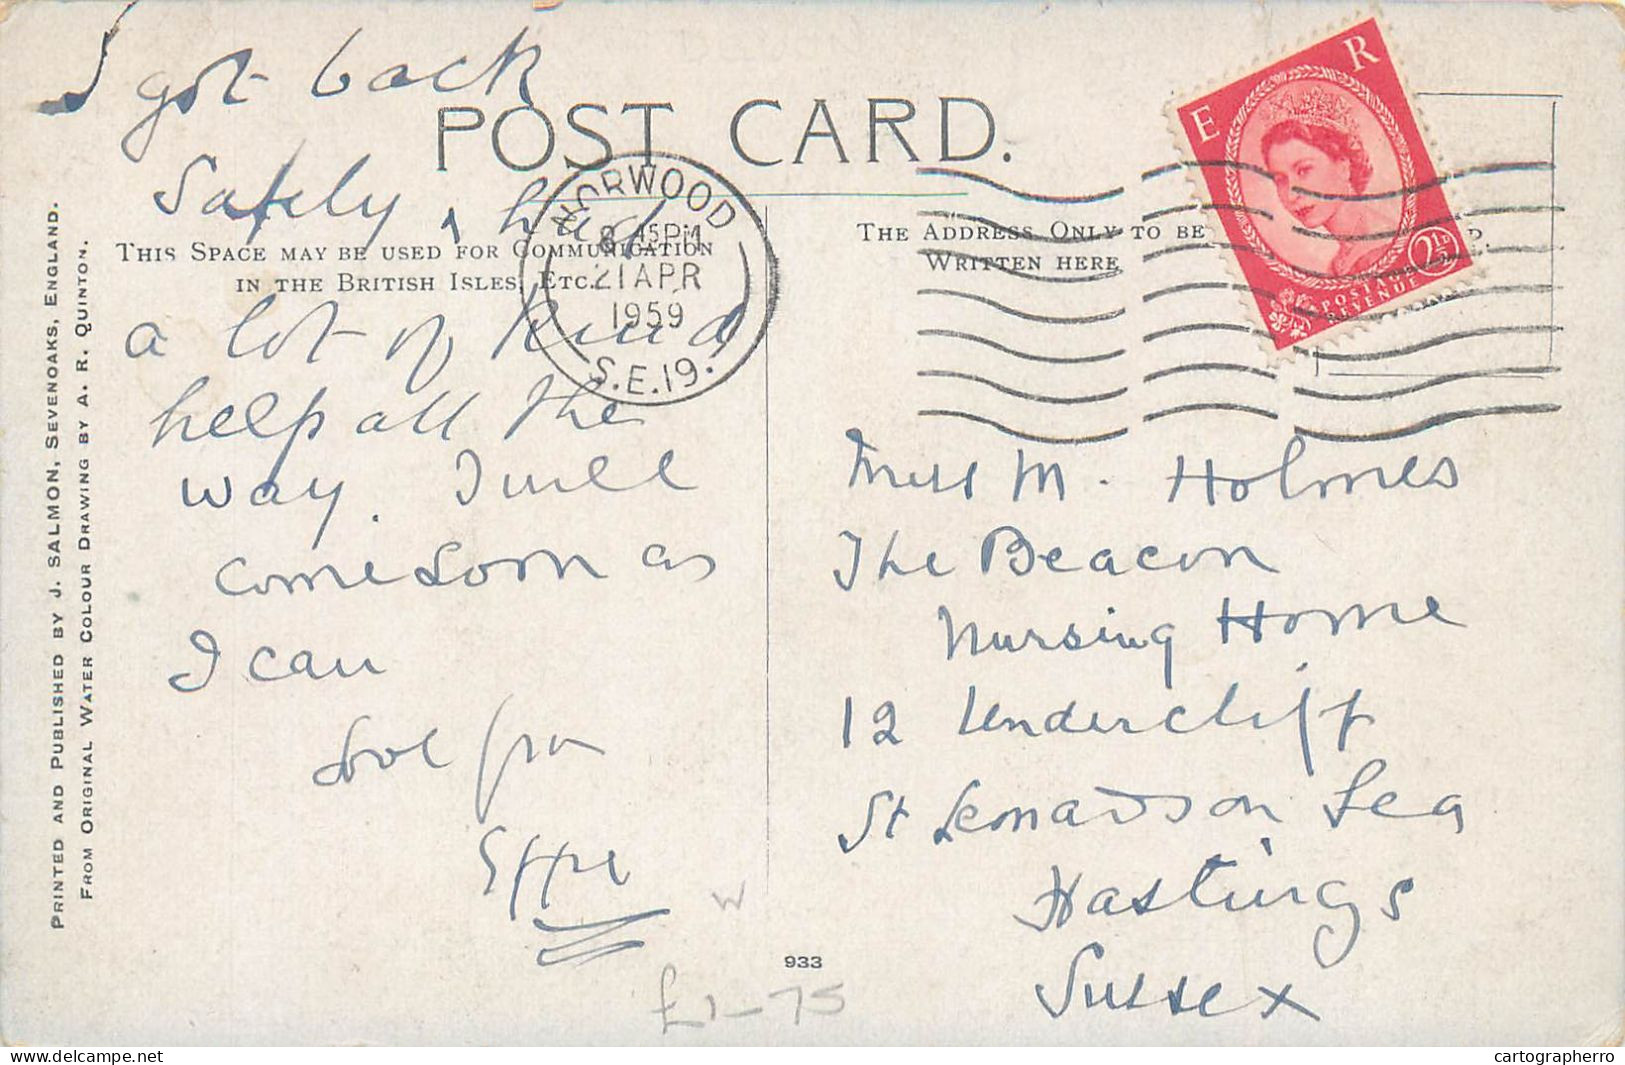 I got back
POST CARD.
Safely, had
THIS SPACE MAY BE USED FOR COMMUNICATION
IN THE BRITISH ISLES, ETC.
a lot of kind
help all the
way. I will
come soon as
I can
Love from
Effie
NORWOOD
8 45PM
21 APR
1959
S.E.19.
E R
POSTAGE
REVENUE
2½D
THE ADDRESS ONLY TO BE
WRITTEN HERE
Miss M. Holmes
The Beacon
Nursing Home
12 Undercliff
St Leonards on Sea
Hastings
Sussex
PRINTED AND PUBLISHED BY J. SALMON, SEVENOAKS, ENGLAND.
FROM ORIGINAL WATER COLOUR DRAWING BY A. R. QUINTON.
W
933
£1-75
cartographerro